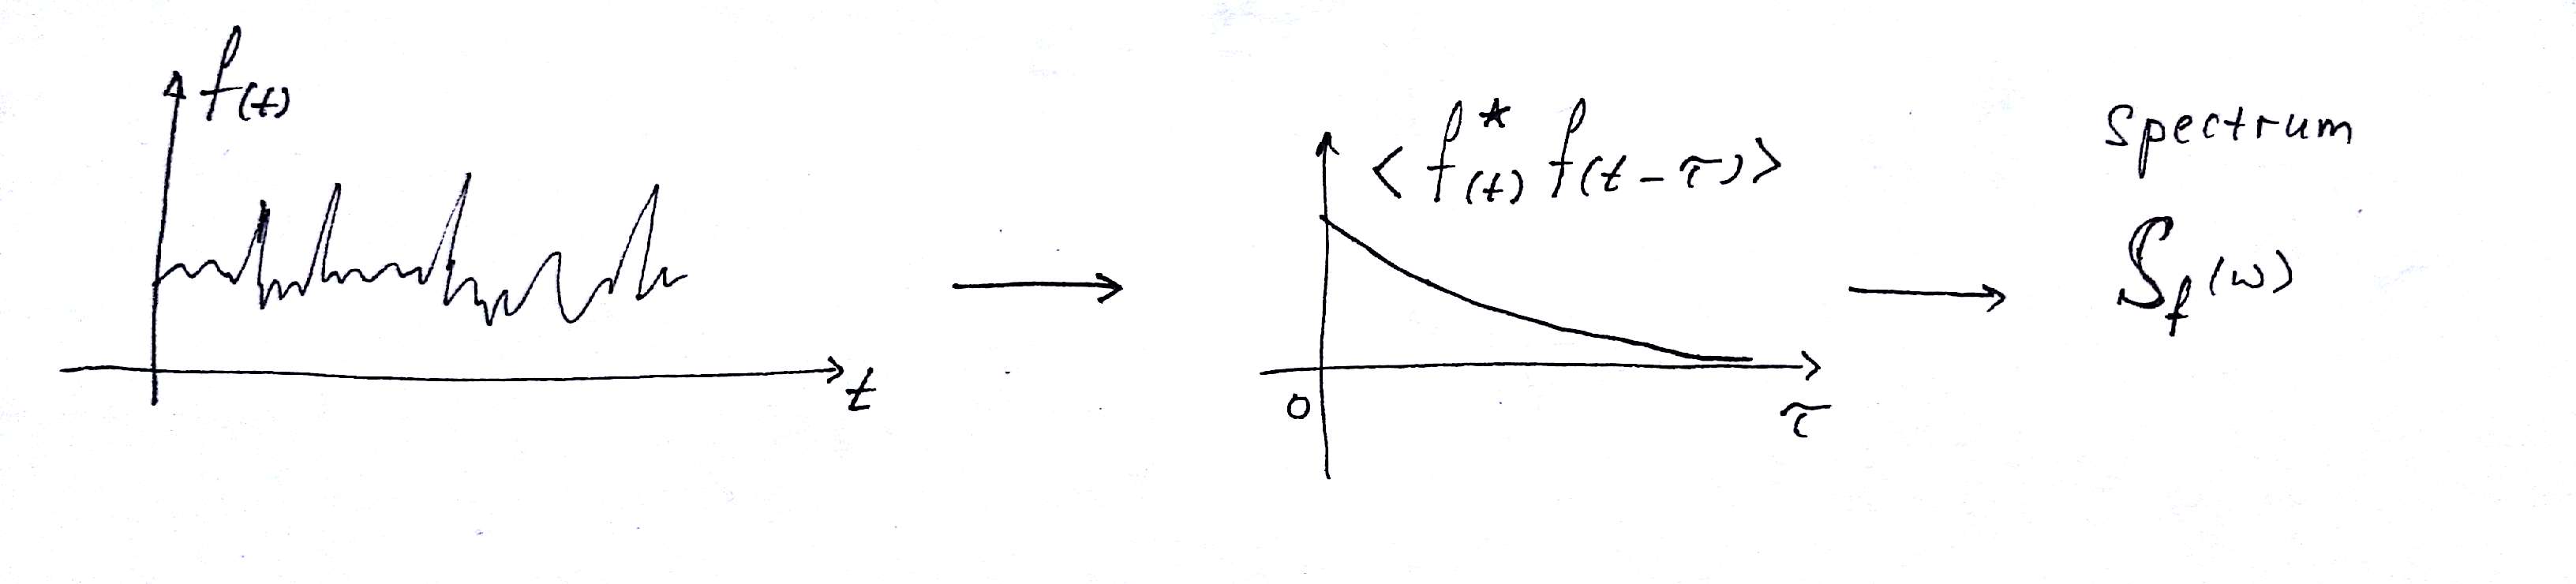 f(t)
t
< f*(t) f(t-τ) >
0
τ
Spectrum
S_f(ω)